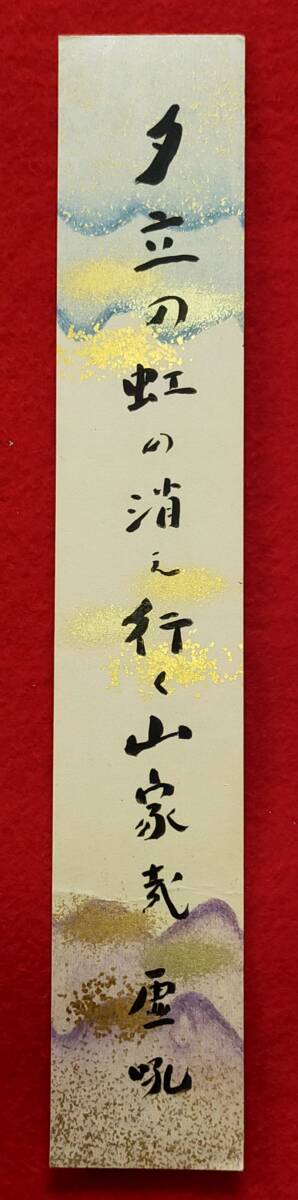 夕立の虹の消え行く山家哉 虚吼